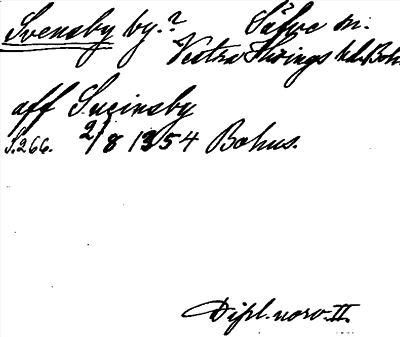 Svensby by.? Säfve sn.
Vestra Hisings hd. Boh.
aff Sueinsby
S.266. 2/8 1354 Bohus.
Dipl. norv. II.